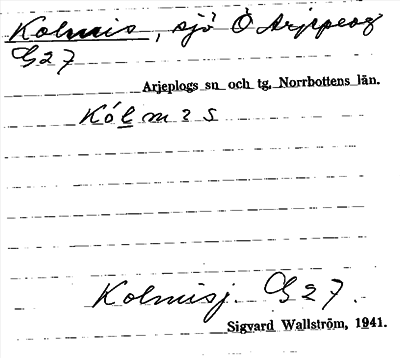 Kolmis, sjö Ö Arjeplog
G27
Arjeplogs sn och tg, Norrbottens län.
Kólmɜs
Kolmisj. G27.
Sigvard Wallström, 1941.